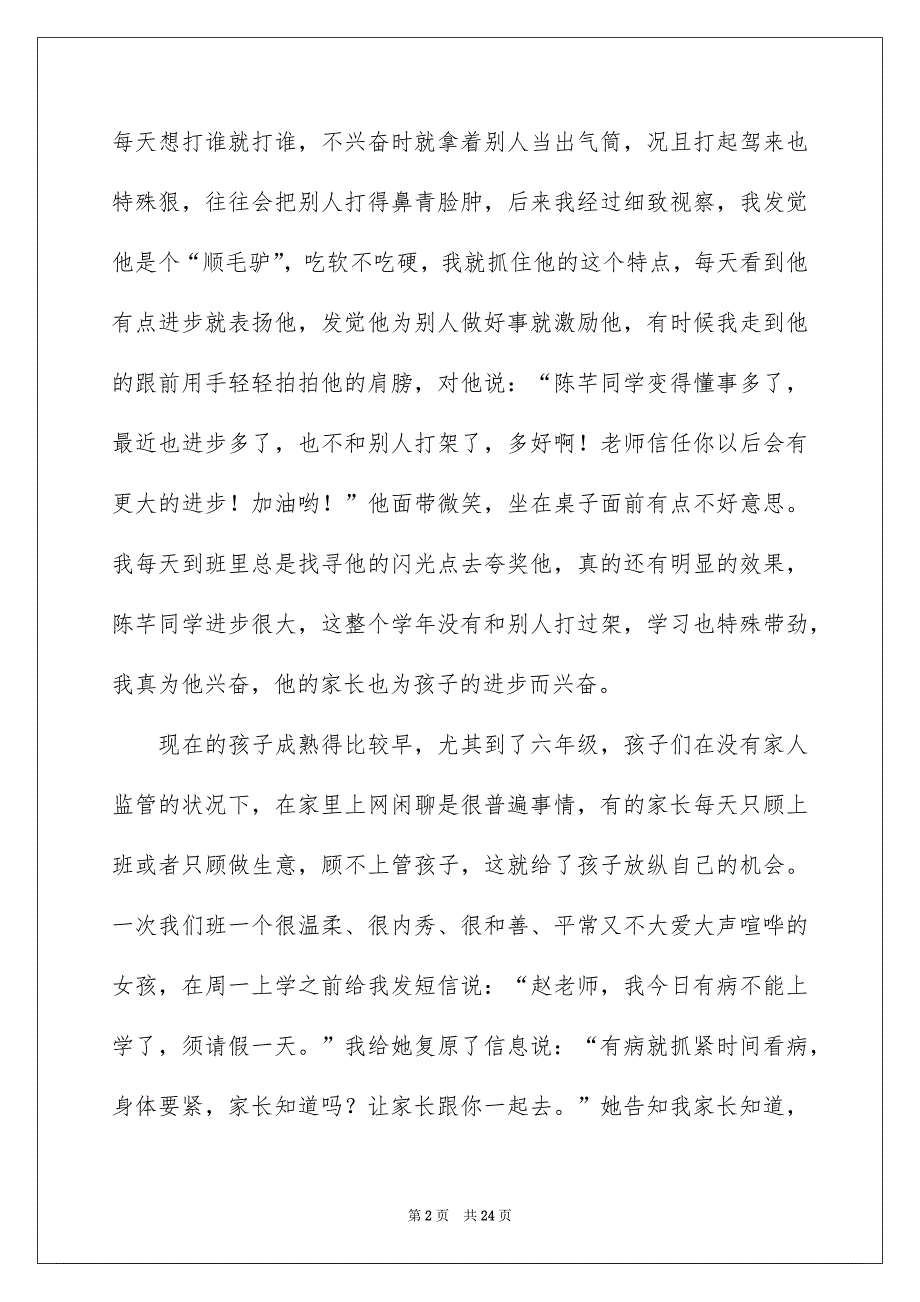 每天想打谁就打谁，不兴奋时就拿着别人当出气筒，况且打起驾来也
特殊狠，往往会把别人打得鼻青脸肿，后来我经过细致视察，我发觉
他是个“顺毛驴”，吃软不吃硬，我就抓住他的这个特点，每天看到他
有点进步就表扬他，发觉他为别人做好事就激励他，有时候我走到他
的跟前用手轻轻拍拍他的肩膀，对他说：“陈芊同学变得懂事多了，
最近也进步多了，也不和别人打架了，多好啊！老师信任你以后会有
更大的进步！加油哟！”他面带微笑，坐在桌子面前有点不好意思。
我每天到班里总是找寻他的闪光点去夸奖他，真的还有明显的效果，
陈芊同学进步很大，这整个学年没有和别人打过架，学习也特殊带劲，
我真为他兴奋，他的家长也为孩子的进步而兴奋。
现在的孩子成熟得比较早，尤其到了六年级，孩子们在没有家人
监管的状况下，在家里上网闲聊是很普遍事情，有的家长每天只顾上
班或者只顾做生意，顾不上管孩子，这就给了孩子放纵自己的机会。
一次我们班一个很温柔、很内秀、很和善、平常又不大爱大声喧哗的
女孩，在周一上学之前给我发短信说：“赵老师，我今日有病不能上
学了，须请假一天。”我给她复原了信息说：“有病就抓紧时间看病，
身体要紧，家长知道吗？让家长跟你一起去。”她告知我家长知道，
第 2 页 共 24 页